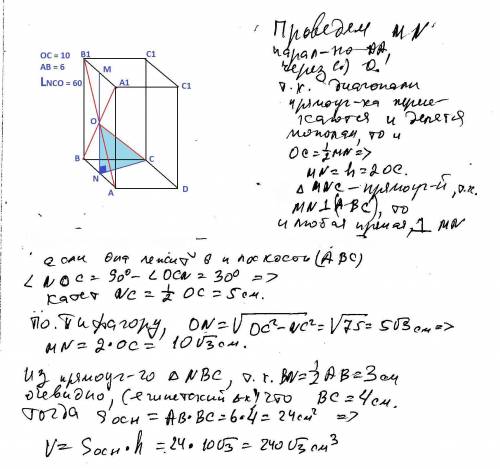 OC = 10
AB = 6
LNCO = 60
B1
C1
M
A1
C1
O
B
C
N
A
D
Проведем MN
парал-но AA1
через (·) O,
т.к. диагонали
прямоуг-ка пересе-
каются и делятся
пополам, то и
OC = ½ MN =>
MN = h = 2OC.
△ MNC – прямоуг-й, т.к.
MN ⊥ (ABC), то
и любая прямая, ⊥ MN
если она лежит в плоскости (ABC)
∠ NOC = 90° - ∠OCN = 30° =>
катет NC = ½ OC = 5 см.
По. Пифагору, ON = √OC² - NC² = √75 = 5√3 см =>
MN = 2 · OC = 10√3 см.
Из прямоуг-го △ NBC, т.к. BN = ½ AB = 3 см
очевидно, (египетский) что BC = 4 см.
Тогда Sосн = AB · BC = 6 · 4 = 24 см² =>
V = Sосн · h = 24 · 10√3 = 240√3 см³